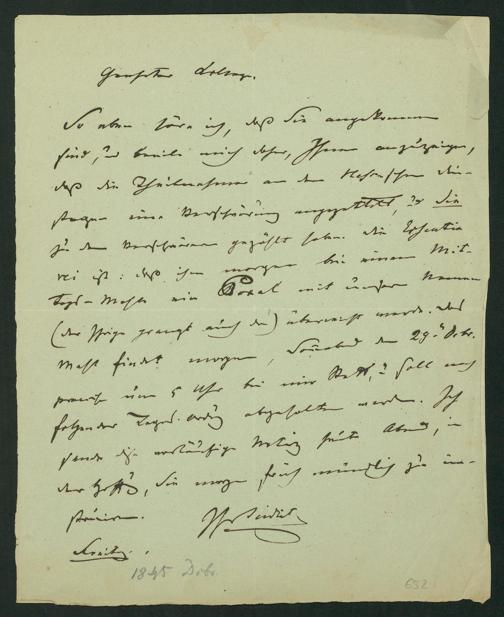 Geehrter College.
So eben höre ich, daß Sie angekommen
sind, und beeile mich daher, Ihnen anzuzeigen,
daß die Theilnehmer an den
eine Verschwörung angezettelt, und Sie
zu den Verschworenen gezählt haben. Die
ist: daß ihm morgen bei einem Mit-
tags-Mahle ein Pokal mit unsern Namen
(der Ihrige prangt auch da) überreicht werde. Das
Mahl findet morgen, den 29. Debr.
praecise um 5 Uhr bei mir Statt, u. soll nach
folgender Tages-Ordng abgehalten werden. Ich
sende diese vorläufige Notiz heute Abend, in
der Hoffg, Sie morgen früh mündlich zu in-
struiren.
Ihr Seidlitz
1845 Debr.
652